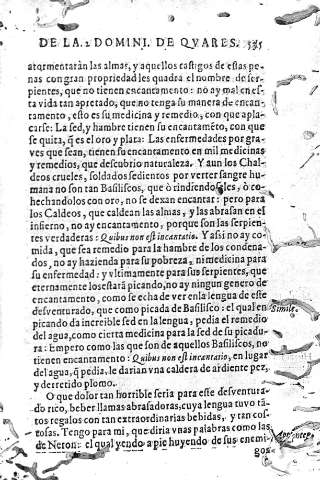 DE LA 2 DOMINI. DE QVARES.
atormentarán las almas, y aquellos castigos de estas pe-
nas con gran propriedad les quadra el nombre de ser-
pientes, que no tienen encantamento: no ay mal en es-
ta vida tan apretado, que no tenga su manera de encan-
tamento, esto es su medicina y remedio, con que apla-
carse: La sed, y hambre tienen su encantamēto, con que
se quita, q̄ es el oro y plata: Las enfermedades por gra-
ves que sean, tienen su encantamento en mil medicinas
y remedios, que descubrio naturaleza. Y aun los Chal-
deos crueles, soldados sedientos por verter sangre hu-
mana no son tan Basiliscos, que ò rindiendoseles, ò co-
hechandolos con oro, no se dexan encantar: pero para
los Caldeos, que caldean las almas, y las abrasan en el
infierno, no ay encantamento, porque son las serpien-
tes verdaderas: Quibus non est incantatio. Y assi no ay co-
mida, que sea remedio para la hambre de los condena-
dos, no ay hazienda para su pobreza, ni medicina para
su enfermedad: y vltimamente para sus serpientes, que
eternamente los estarà picando, no ay ningun genero de
encantamento, como se echa de ver en la lengua de este
desventurado, que como picada de Basilisco: el qual en
Simile.
picando da increible sed en la lengua, pedia el remedio
del agua, como cierta medicina para la sed de su picadu-
ra: Empero como las que son de aquellos Basiliscos, no
tienen encantamento: Quibus non est incantatio, en lugar
del agua, q̄ pedia, le darian vna caldera de ardiente pez,
y derretido plomo.
O que dolor tan horrible seria para este desventura-
do rico, beber llamas abrasadoras, cuya lengua tuvo tā-
tos regalos con tan extraordinarias bebidas, y tan cos-
tosas. Tengo para mi, que diria vnas palabras como las
de Neron: el qual yendo a pie huyendo de sus enemi-
gos